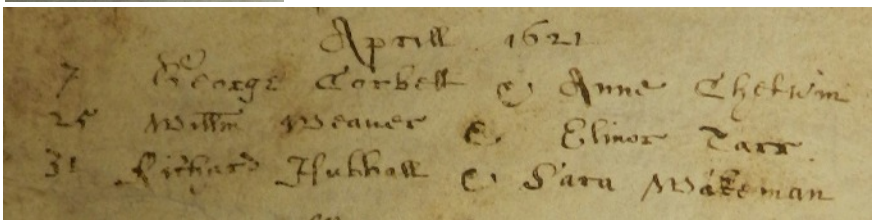 Aprill 1621
7 George Corbett & Anne Chetwin
25 Willm Weaver & Elinor Tarr
31 Richard Hubball & Sara Wakeman